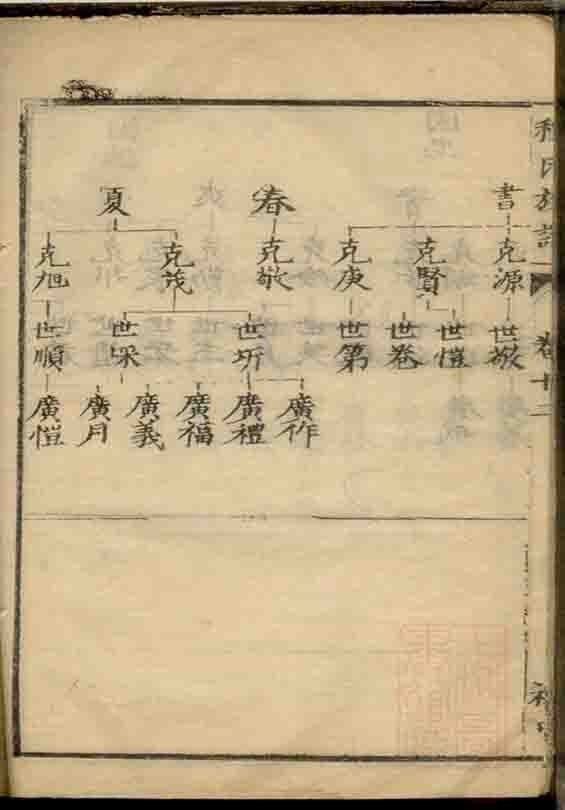 書 春 夏
克源 克賢 克庚 克敬 克茂 克旭
世敬 世愷 世卷 世第 世圻 世埰 世順
廣作 廣禮 廣福 廣義 廣月 廣愷
氏族
卷十二